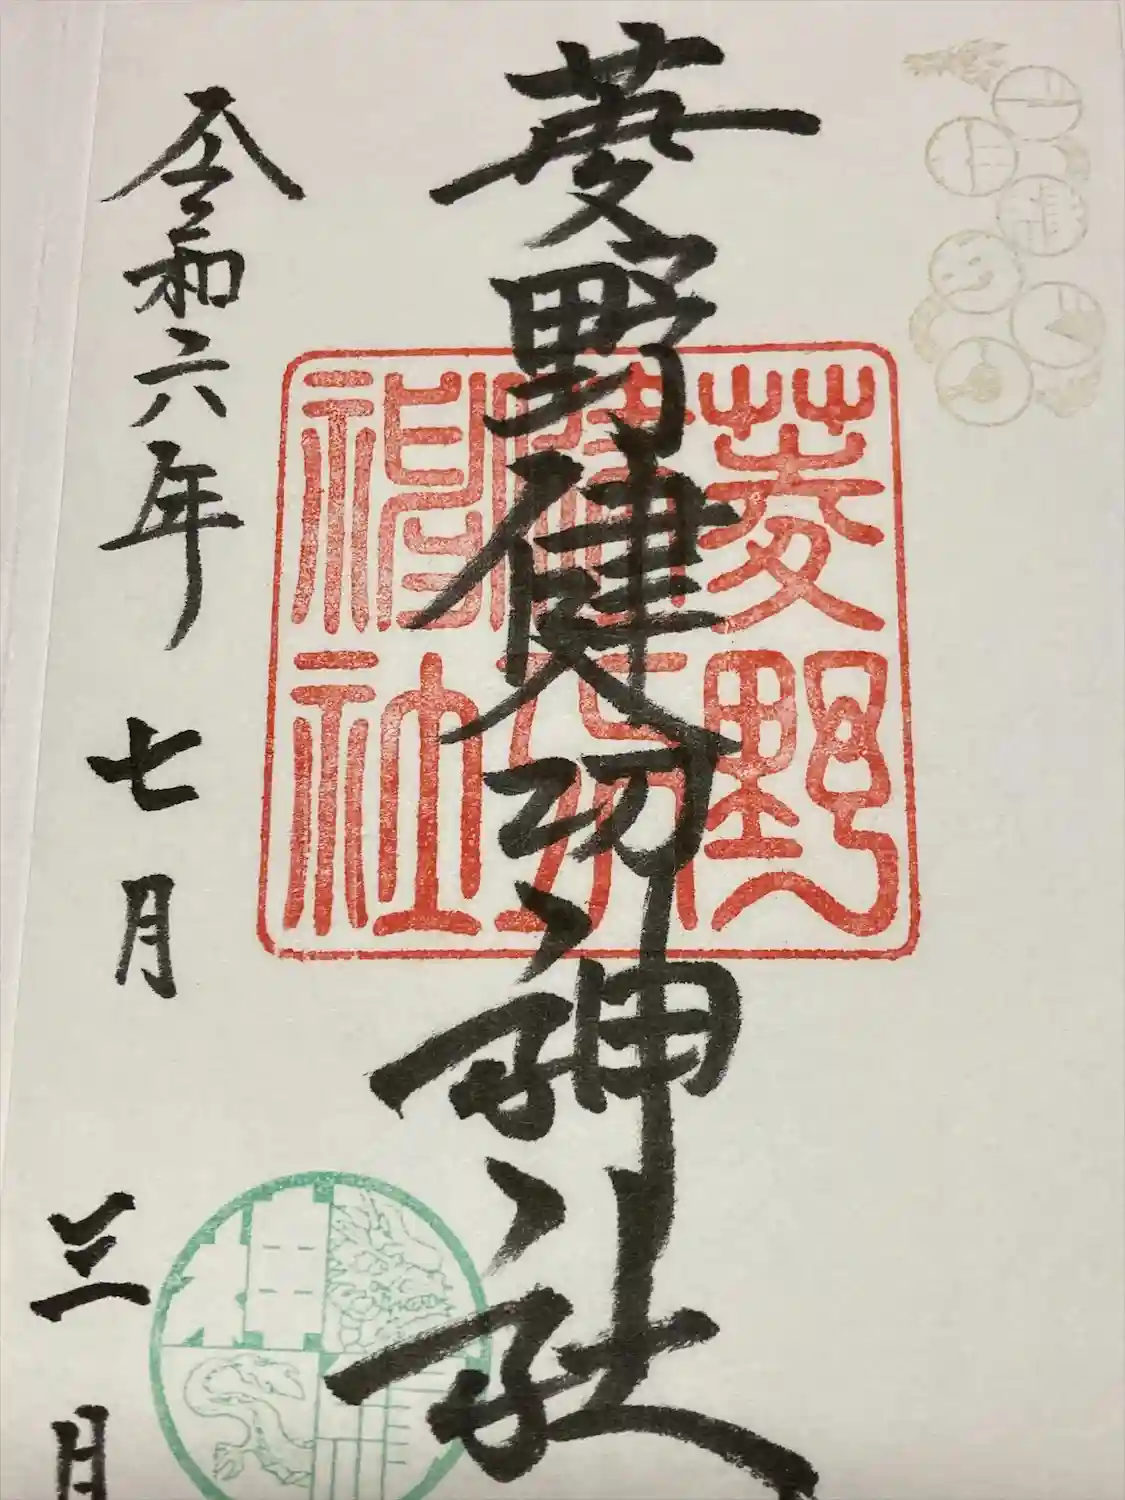 菱野健功神社
令和六年七月三日
菱野
健功
神社